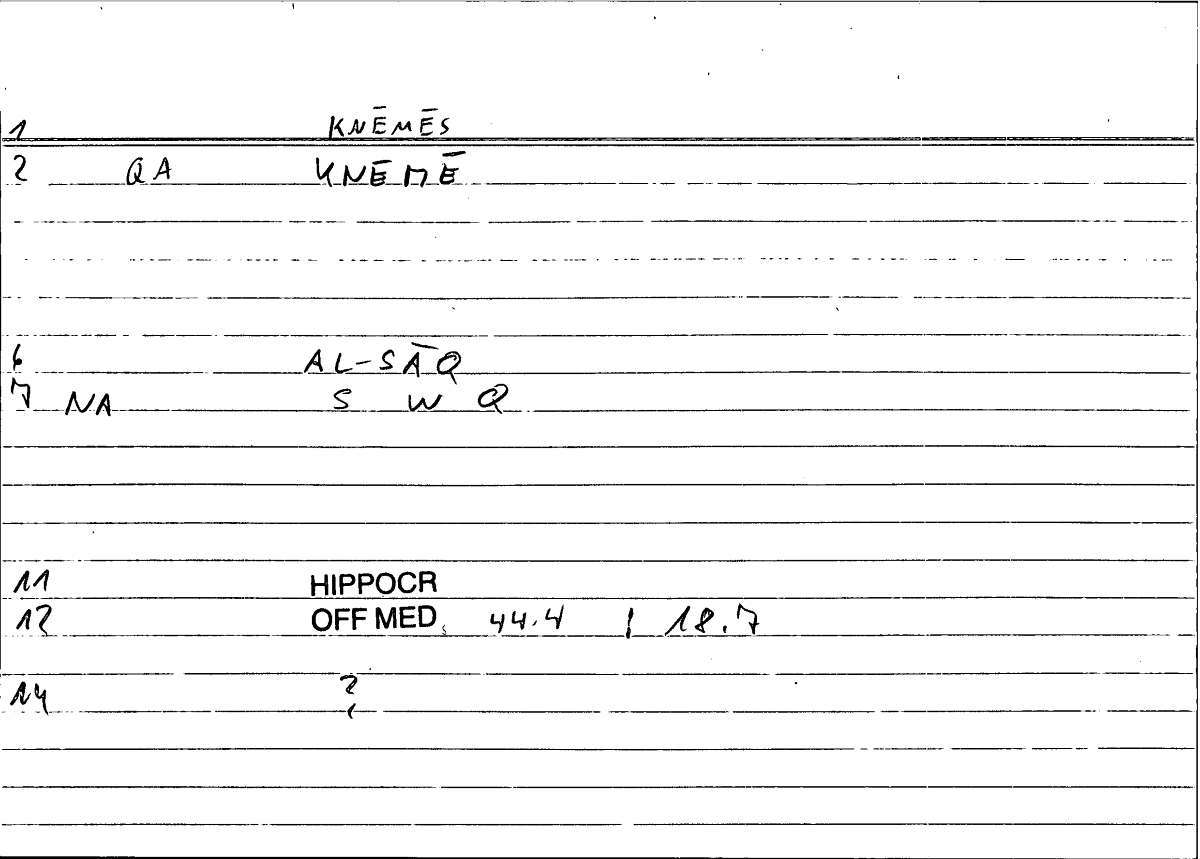 1 KNĒMĒS
2 QA KNĒMĒ
6 AL-SĀQ
7 NA S W Q
11 HIPPOCR
12 OFF MED 44.4 | 18.7
14 ?